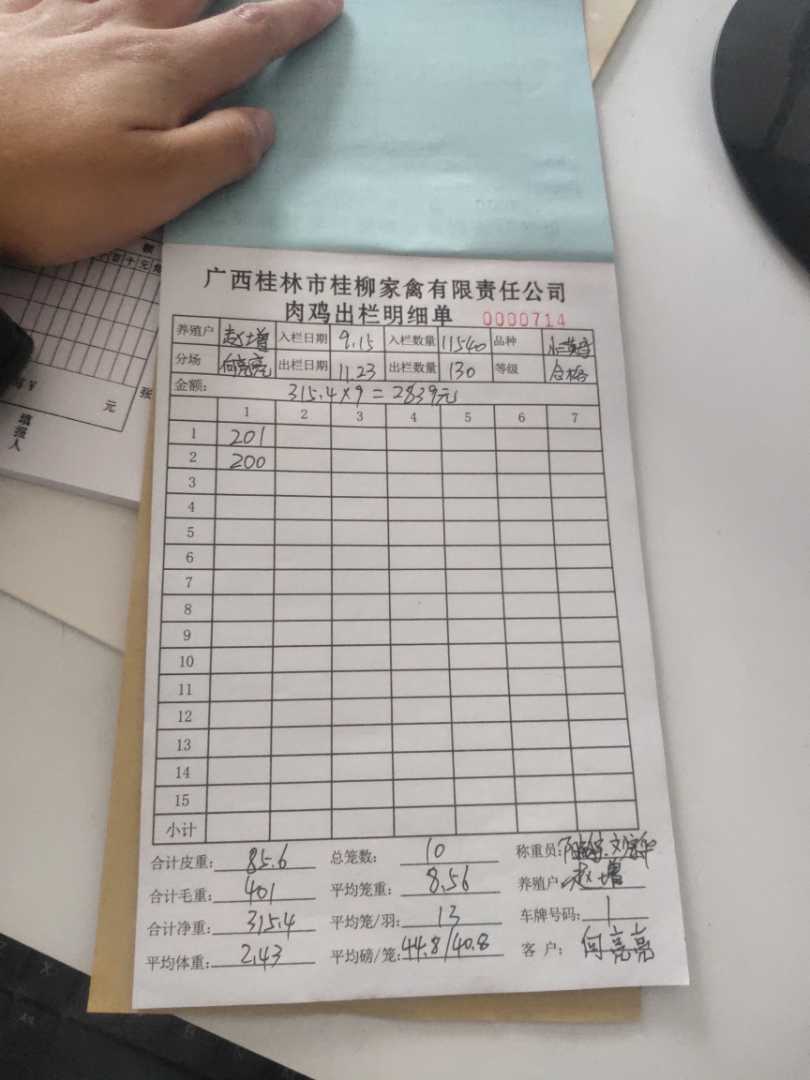 广西桂林市桂柳家禽有限责任公司
肉鸡出栏明细单 0000714
养殖户 赵增 入栏日期 9.15 入栏数量 11540 品种
分场 何亮亮 出栏日期 11.23 出栏数量 130 等级 合格
金额: 315.4×9=2839元
1 2 3 4 5 6 7
1 201
2 200
3
4
5
6
7
8
9
10
11
12
13
14
15
小计
合计皮重: 85.6 总笼数: 10 称重员:
合计毛重: 401 平均笼重: 8.56 养殖户: 赵增
合计净重: 315.4 平均笼/羽: 13 车牌号码: 1
平均体重: 2.43 平均磅/笼: 44.8/40.8 客户: 何亮亮
额
百十元角
元
张
填报人